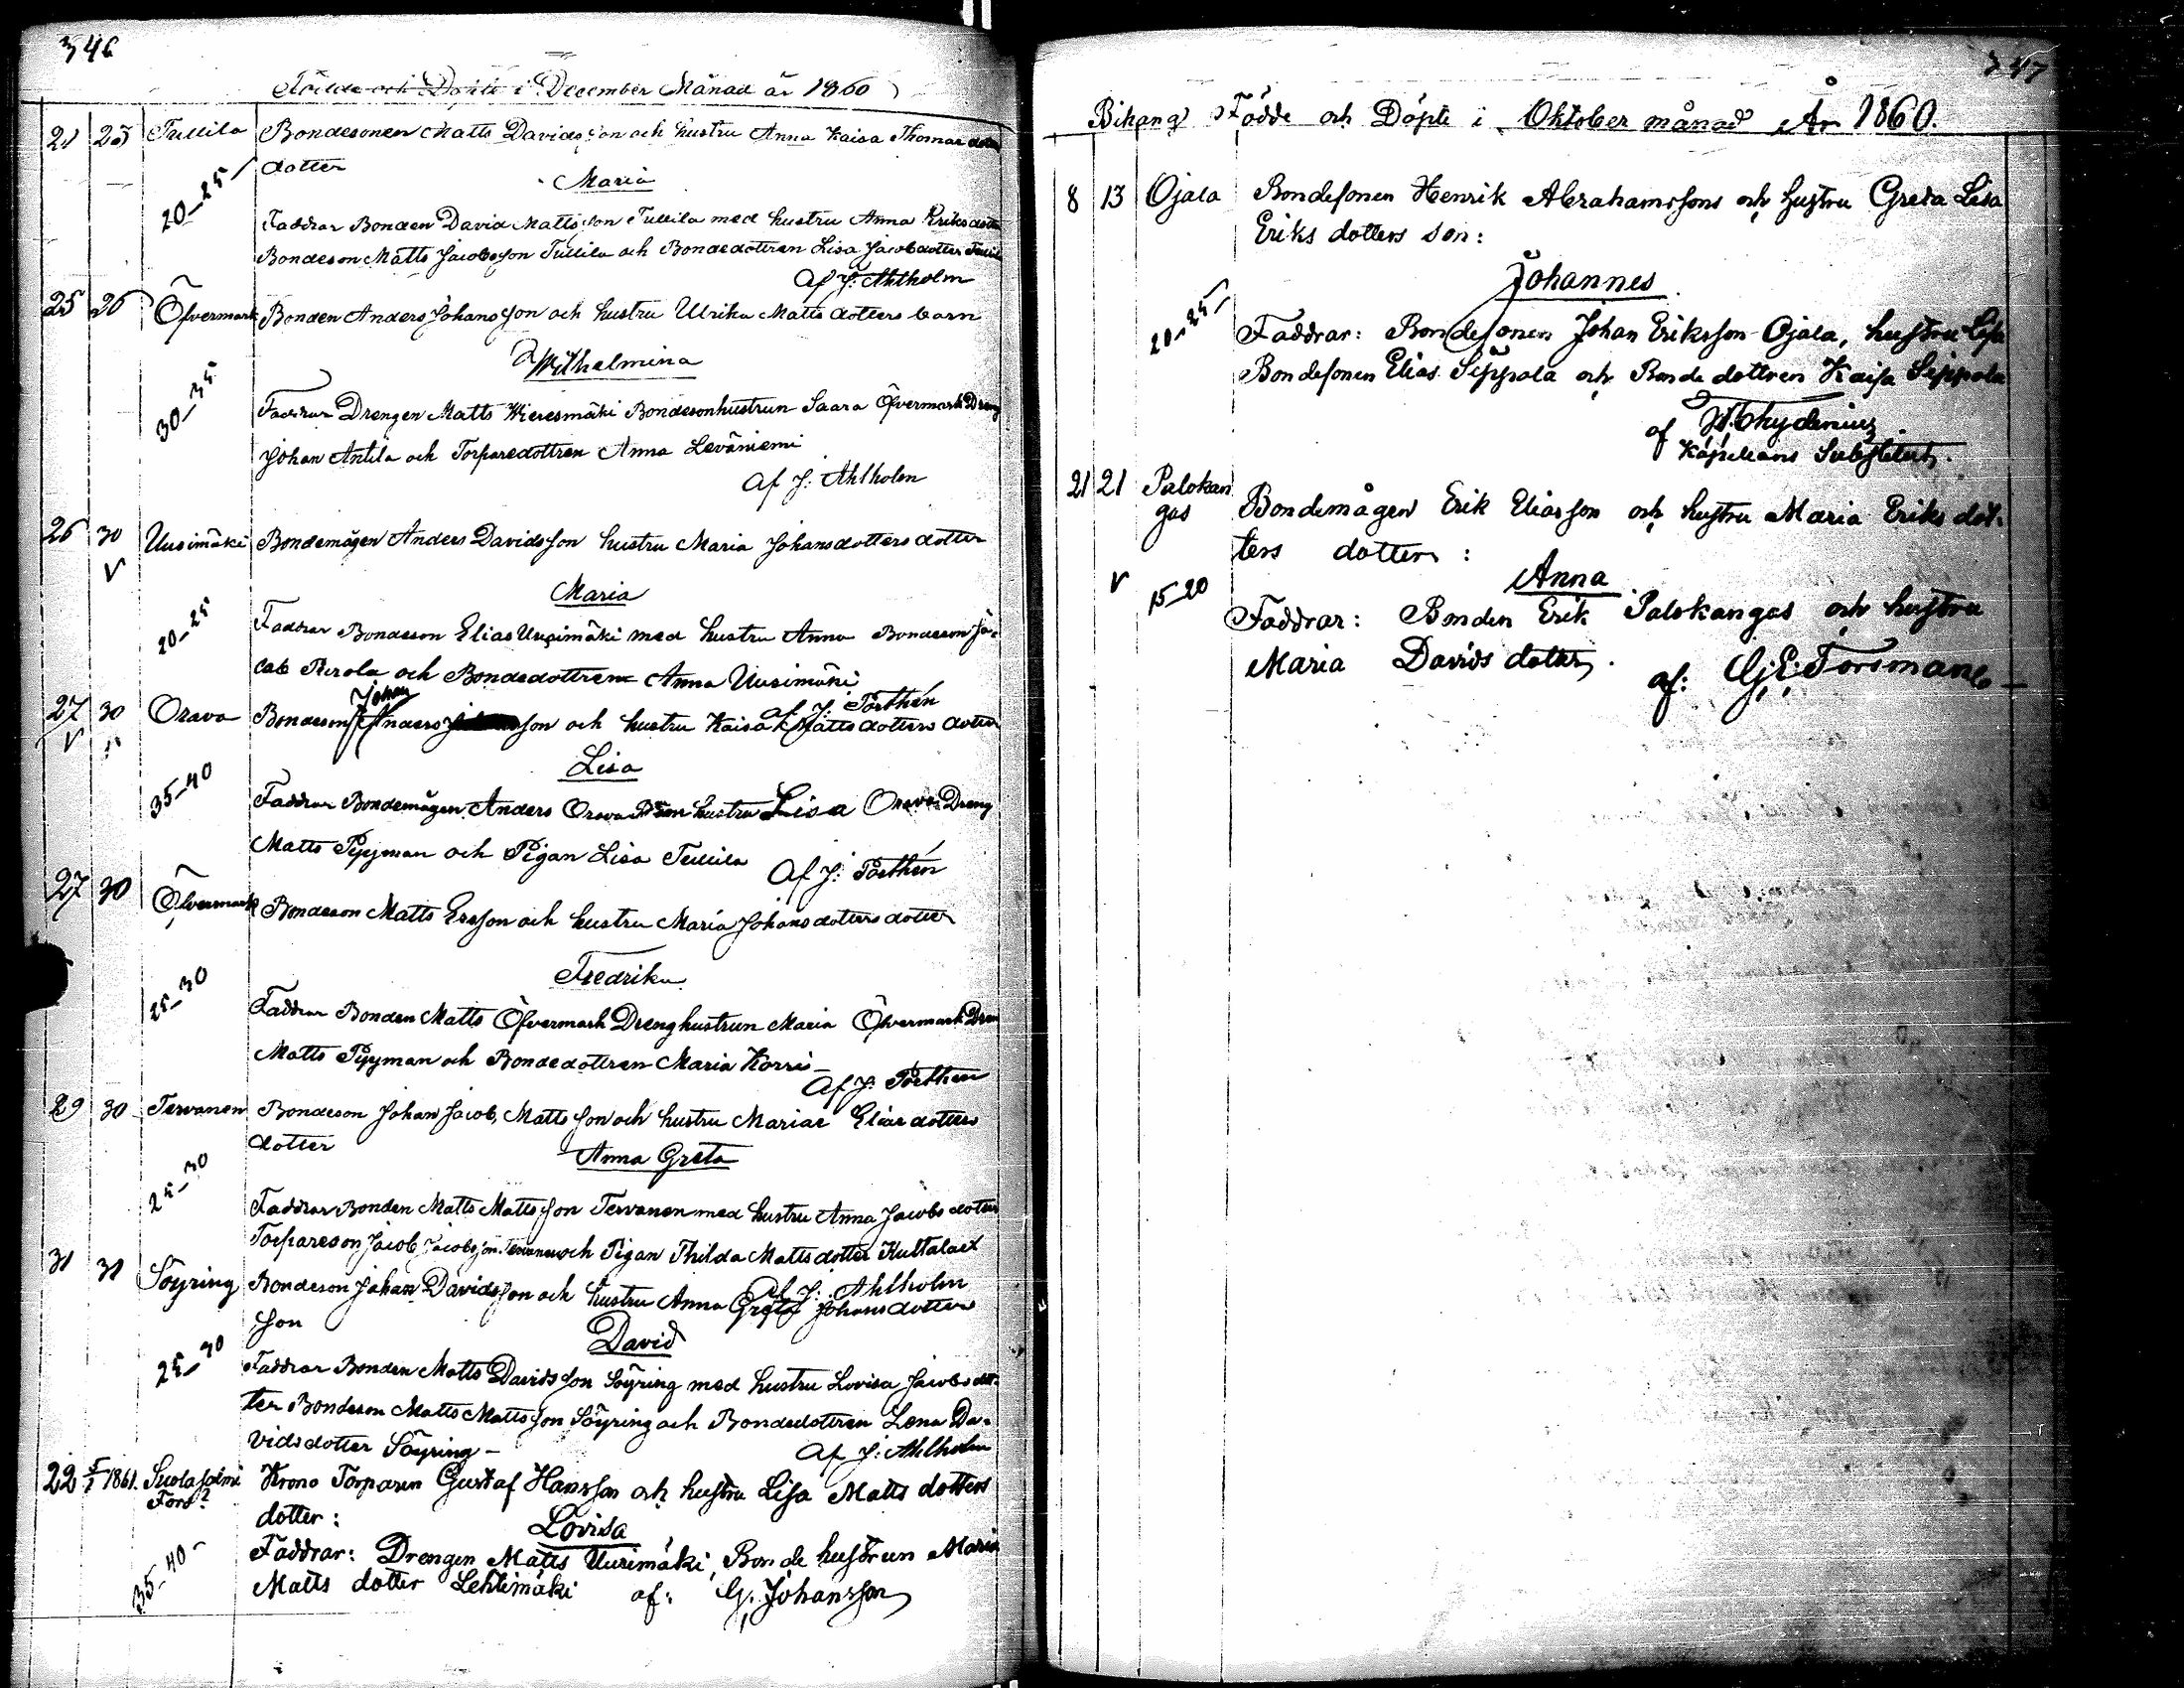 346
Födde och Döpte i December Månad år 1860
21 23 Tullila Bondesonen Matts Davidsson och hustru Anna Kaisa Thomas dotters
dotter
Maria
20–25
Faddrar Bonden David Mattsson Tullila med hustru Anna Eriksdotter
Bondeson Matts Jacobsson Tullila och Bondedottren Lisa Jacobdotter Tullila
Af J: Ahlholm
25 26 Öfvermark Bonden Anders Johansson och hustru Ulrika Matts dotters barn
Wilhelmina
30–35
Faddrar Drengen Matts Wieresmäki Bondesonhustrun Saara Öfvermark Dreng
Johan Antila och Torparedottren Anna Leväniemi
Af J: Ahlholm
26 30 Uusimäki Bondemågen Anders Davidsson hustru Maria Johansdotters dotter
V
Maria
20–25
Faddrar Bondeson Elias Uusimäki med hustru Anna Bondeson Ja-
cob Perola och Bondedottren Anna Uusimäki
af J: Porthén
27 30 Orava Bondeson Anders Johan son och hustru Kaisa Matts dotters dotter
V
Lisa
35–40
Faddrar Bondemågen Anders Orava hustru Lisa Orava Dreng
Matts Pyyman och Pigan Lisa Tullila
Af J: Porthén
27 30 Öfvermark Bondeson Matts Ersson och hustru Maria Johansdotters dotter
Fredrika
25–30
Faddrar Bonden Matts Öfvermark Drenghustrun Maria Öfvermark Dren
Matts Pyyman och Bondedottren Maria Korri–
Af J: Porthen
29 30 Tervanen Bondeson Johan Jacob Mattsson och hustru Marias Elias dotters
dotter
Anna Greta
25–30
Faddrar Bonden Matts Mattsson Tervanen med hustru Anna Jacobs dotter
Torpareson Jacob Jacobsson Tervanen och Pigan Thilda Mattsdotter Kultalaet
Af J: Ahlholm
31 31 Söyring Bondeson Johan Davidsson och hustru Anna Greta Johansdotters
son
David
25–30
Faddrar Bonden Matts Davidsson Söyring med hustru Lovisa Jacobs dot-
ter Bondeson Matts Mattsson Söyring och Bondedottren Lena Da-
vidsdotter Söyring–
Af J: Ahlholm
22 5/1 1861. Suolasalmi Krono Torparen Gustaf Hansson och hustru Lisa Matts dotters
Fors?
dotter:
Lovisa
35–40–
Faddrar: Drengen Matts Uusimäki, Bonde hustrun Maria
Matts dotter Lehtimäki af: G. Johansson
347
Bihang Födde och Döpte i Oktober månad År 1860.
8 13 Ojala Bondesonen Henrik Abrahamssons och hustru Greta Lisa
Eriks dotters son:
Johannes
20–25
Faddrar: Bondesonen Johan Eriksson Ojala, hustru Lisa
Bondesonen Elias Seppala och Bonde dottren Kaisa Seppala
af Chydenius
Kapellans Substitut.
21 21 Palokan
gas
Bondemågen Erik Eliasson och hustru Maria Eriks dot-
ters dotter:
Anna
V 15–20
Faddrar: Bonden Erik Palokangas och hustru
Maria Davids dotter.
af: G: E: Forsman